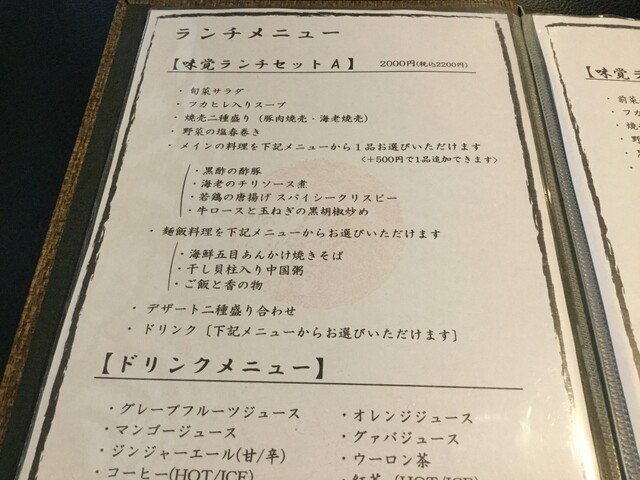 ランチメニュー
【味覚ランチセットA】 2000円(税込2200円)
・旬菜サラダ
・フカヒレ入りスープ
・焼売二種盛り(豚肉焼売・海老焼売)
・野菜の塩春巻き
・メインの料理を下記メニューから1品お選びいただけます
〈+500円で1品追加できます〉
・黒酢の酢豚
・海老のチリソース煮
・若鶏の唐揚げ スパイシークリスピー
・牛ロースと玉ねぎの黒胡椒炒め
・麺飯料理を下記メニューからお選びいただけます
・海鮮五目あんかけ焼きそば
・干し貝柱入り中国粥
・ご飯と香の物
・デザート二種盛り合わせ
・ドリンク［下記メニューからお選びいただけます］
【ドリンクメニュー】
・グレープフルーツジュース ・オレンジジュース
・マンゴージュース ・グァバジュース
・ジンジャーエール(甘/辛) ・ウーロン茶
・コーヒー(HOT/ICE) ・紅茶 (HOT/ICE)
【味覚ラ
・前菜
・フカ
・焼
・野